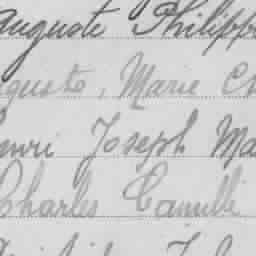 Auguste Philippe
Auguste, Marie
Henri Joseph Ma
Charles Camille